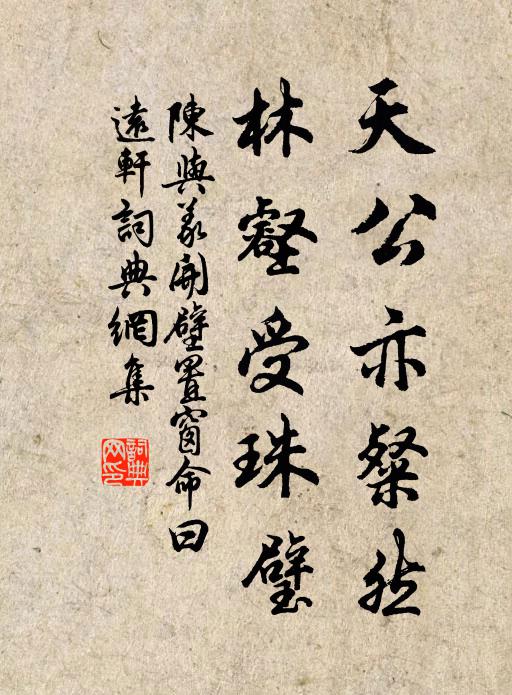 天公亦粲然
林壑受珠璧
陳與義開壁置窗命曰
遠軒詞典網集
詞典網印